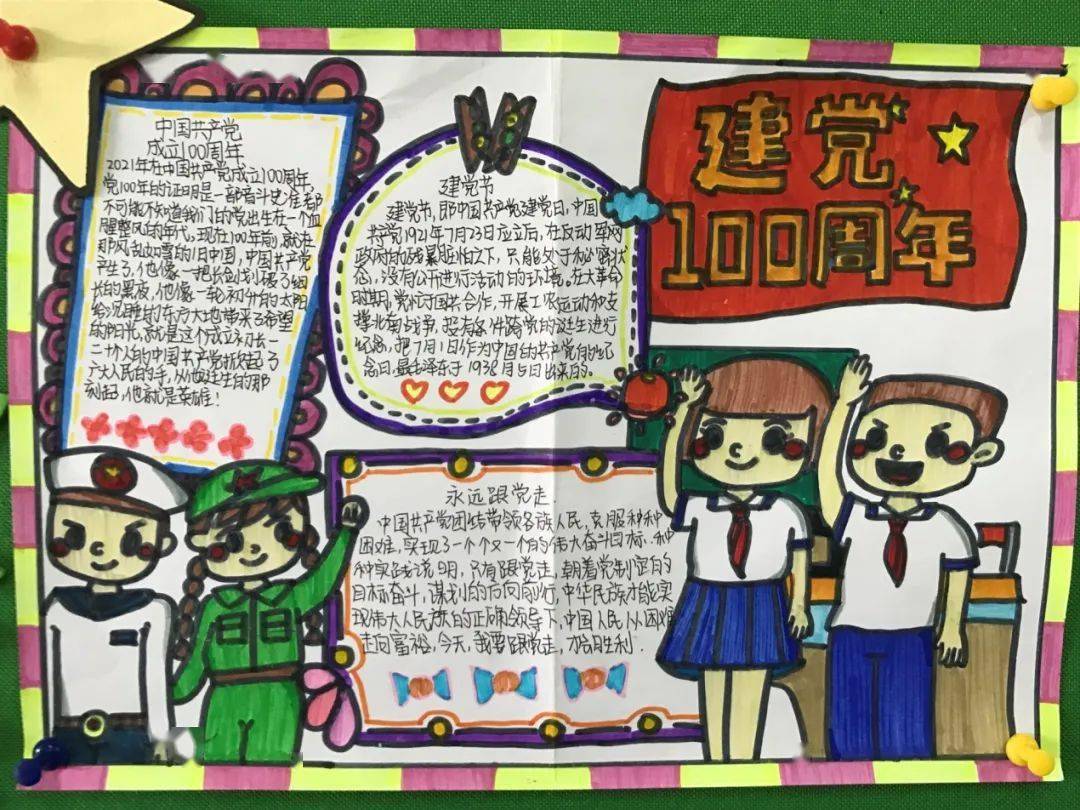 中国共产党
成立100周年
2021年在中国共产党成立100周年,
党100年的证明是一部奋斗史,谁都
不可能不知道我们的党出生在一个血
腥整风的年代,现在100年前,就在
那风乱如雪的旧中国,中国共产党
产生了,他像一把长剑划破了细
长的黑夜,他像一轮初升的太阳
给沉睡的东方大地带来了希望
的阳光,就是这个成立初长一
二十个人的中国共产党掀起了
广大人民的手,从他诞生的那
刻起,他就是英雄!
建党节
建党节,即中国共产党建党日,中国
共产党1921年7月23日应立后,在反动军阀
政府的残暴胆怕之下,只能处于秘密状
态,没有公开进行活动的环境。在大革命
时期,党忙讨国共合作,开展工农运动和支
撑北伐战争,没有条件跨党的诞生进行
纪念,把7月1日作为中国的共产党有的纪
念日,最毛泽东于1938月5日出来的。
建党
100周年
永远跟党走.
中国共产党团结带领各族人民,克服种种
困难,实现了一个个又一个有的伟大奋斗目标,种
种实践说明,只有跟党走,朝着党制定的
目标奋斗,谋划的方向前行,中华民族才能实
现伟大人民族的正确领导下,中国人民从困难
走向富裕,今天,我要跟党走,才合胜利.